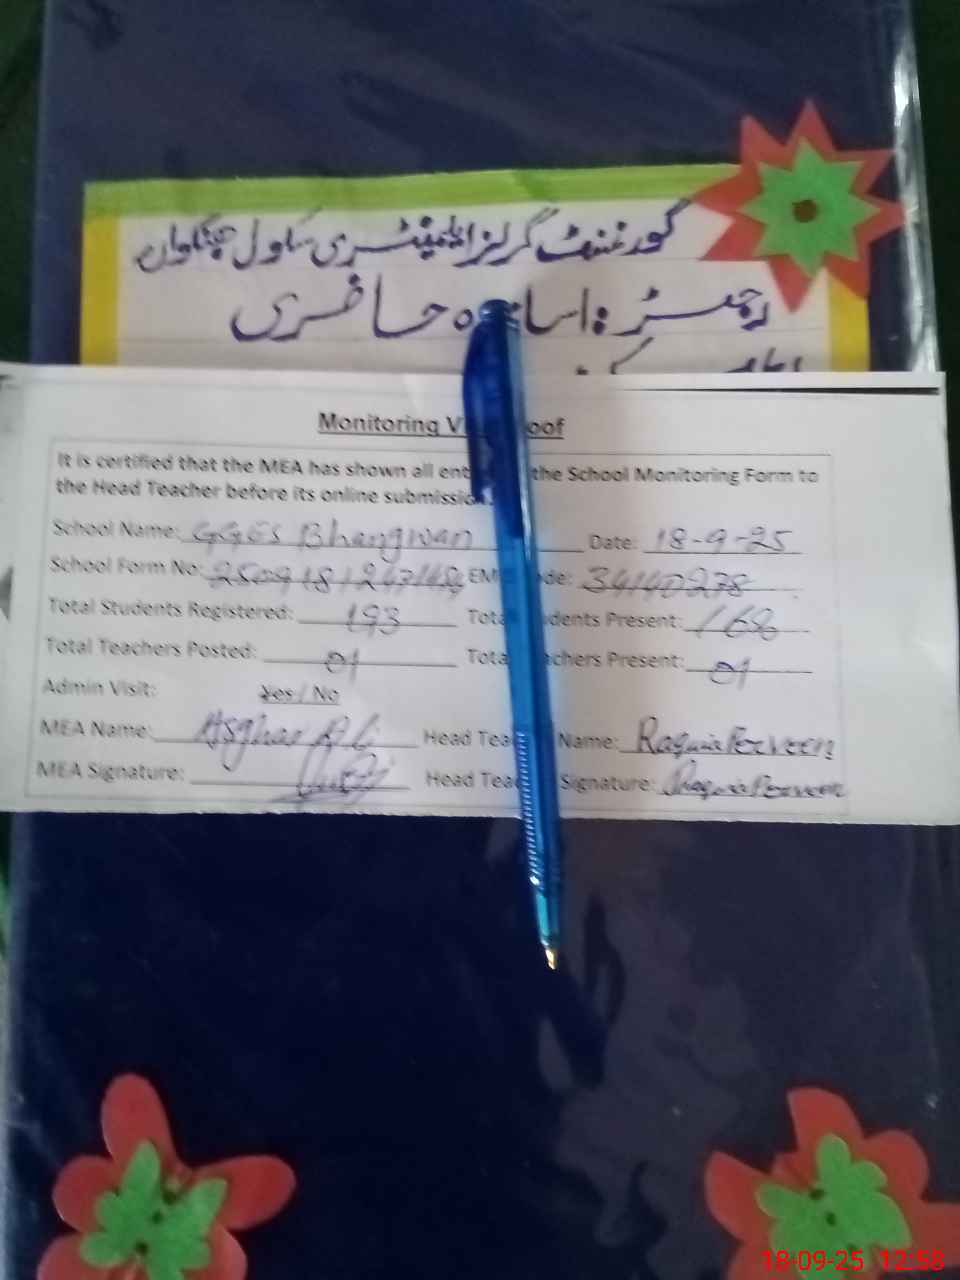 گورنمنٹ گرلز ایلیمنٹری سکول بھنگواں
رجسٹر: اساتذہ حاضری
Monitoring V oof
It is certified that the MEA has shown all ent the School Monitoring Form to
the Head Teacher before its online submission.
School Name: GGES Bhangwan Date: 18-9-25
School Form No: EM de: 34140278
Total Students Registered: 193 Tota udents Present: 168
Total Teachers Posted: 01 Tota chers Present: 01
Admin Visit: Yes / No
MEA Name: Asghar Ali Head Tea Name: Raquia Perveen
MEA Signature: Head Tea Signature: Raquia Perveen
18-09-25 12:58